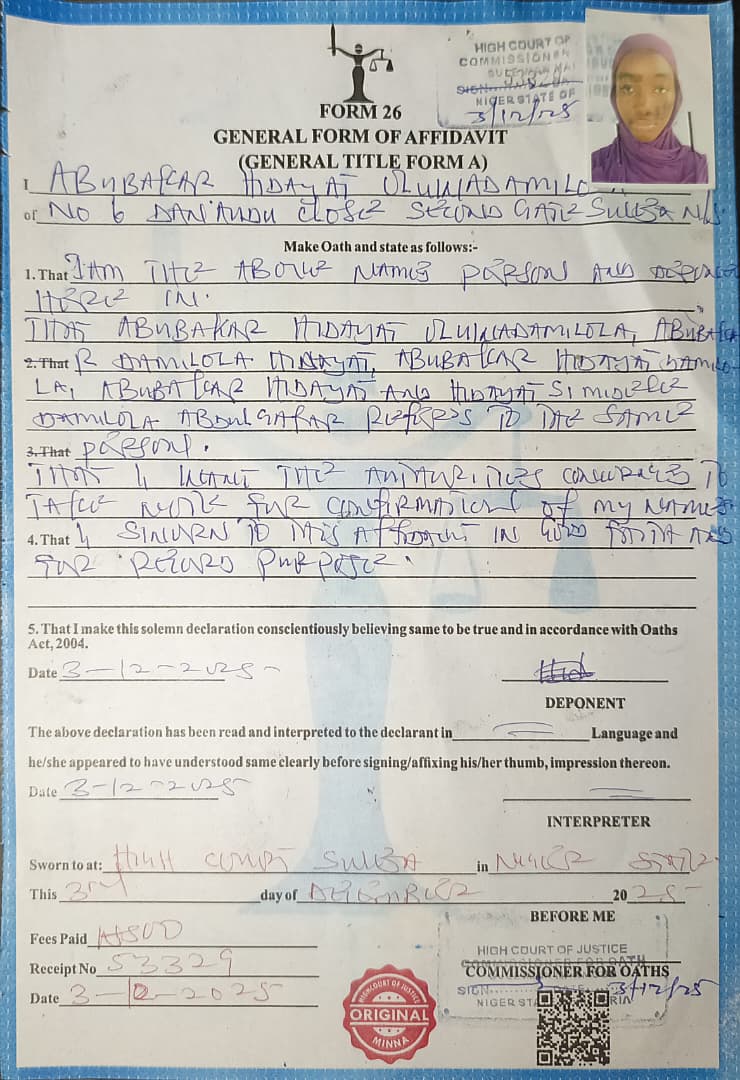 HIGH COURT OF
COMMISSION
SULEJA
SIGN
NIGER STATE OF
3/12/25
FORM 26
GENERAL FORM OF AFFIDAVIT
(GENERAL TITLE FORM A)
I ABUBAKAR HIDAYAT OLUWADAMILO
of No 6 DAN'AUDU CLOSE SECOND GATE SULEJA N/S.
Make Oath and state as follows:-
1. That I AM THE ABOVE NAMED PERSON AND DEPONENT
HERE IN.
THAT ABUBAKAR HIDAYAT OLUWADAMILOLA, ABUBAKA
2. That R DAMILOLA HIDAYAT, ABUBAKAR HIDAYAT DAMILO
LA, ABUBAKAR HIDAYAT AND HIDAYAT SIMIDELE
DAMILOLA ABDULGAFAR REFERS TO THE SAME
3. That PERSON.
THAT I WANT THE AUTHORITIES CONCERNED TO
TAKE NOTE FOR CONFIRMATION OF MY NAMES
4. That I SWORN TO THIS AFFIDAVIT IN GOOD FAITH AND
FOR RECORD PURPOSE.
5. That I make this solemn declaration conscientiously believing same to be true and in accordance with Oaths
Act, 2004.
Date 3-12-2025
DEPONENT
The above declaration has been read and interpreted to the declarant in Language and
he/she appeared to have understood same clearly before signing/affixing his/her thumb, impression thereon.
Date 3-12-2025
INTERPRETER
Sworn to at: HIGH COURT SULEJA in NIGER STATE.
This 3rd day of DECEMBER 2025
BEFORE ME
Fees Paid ₦500
Receipt No 53329
Date 3-12-2025
HIGH COURT OF JUSTICE
COMMISSIONER FOR OATH
COMMISSIONER FOR OATHS
SIGN 3/12/25
NIGER STA RIA
HIGH COURT OF JUSTICE
ORIGINAL
MINNA